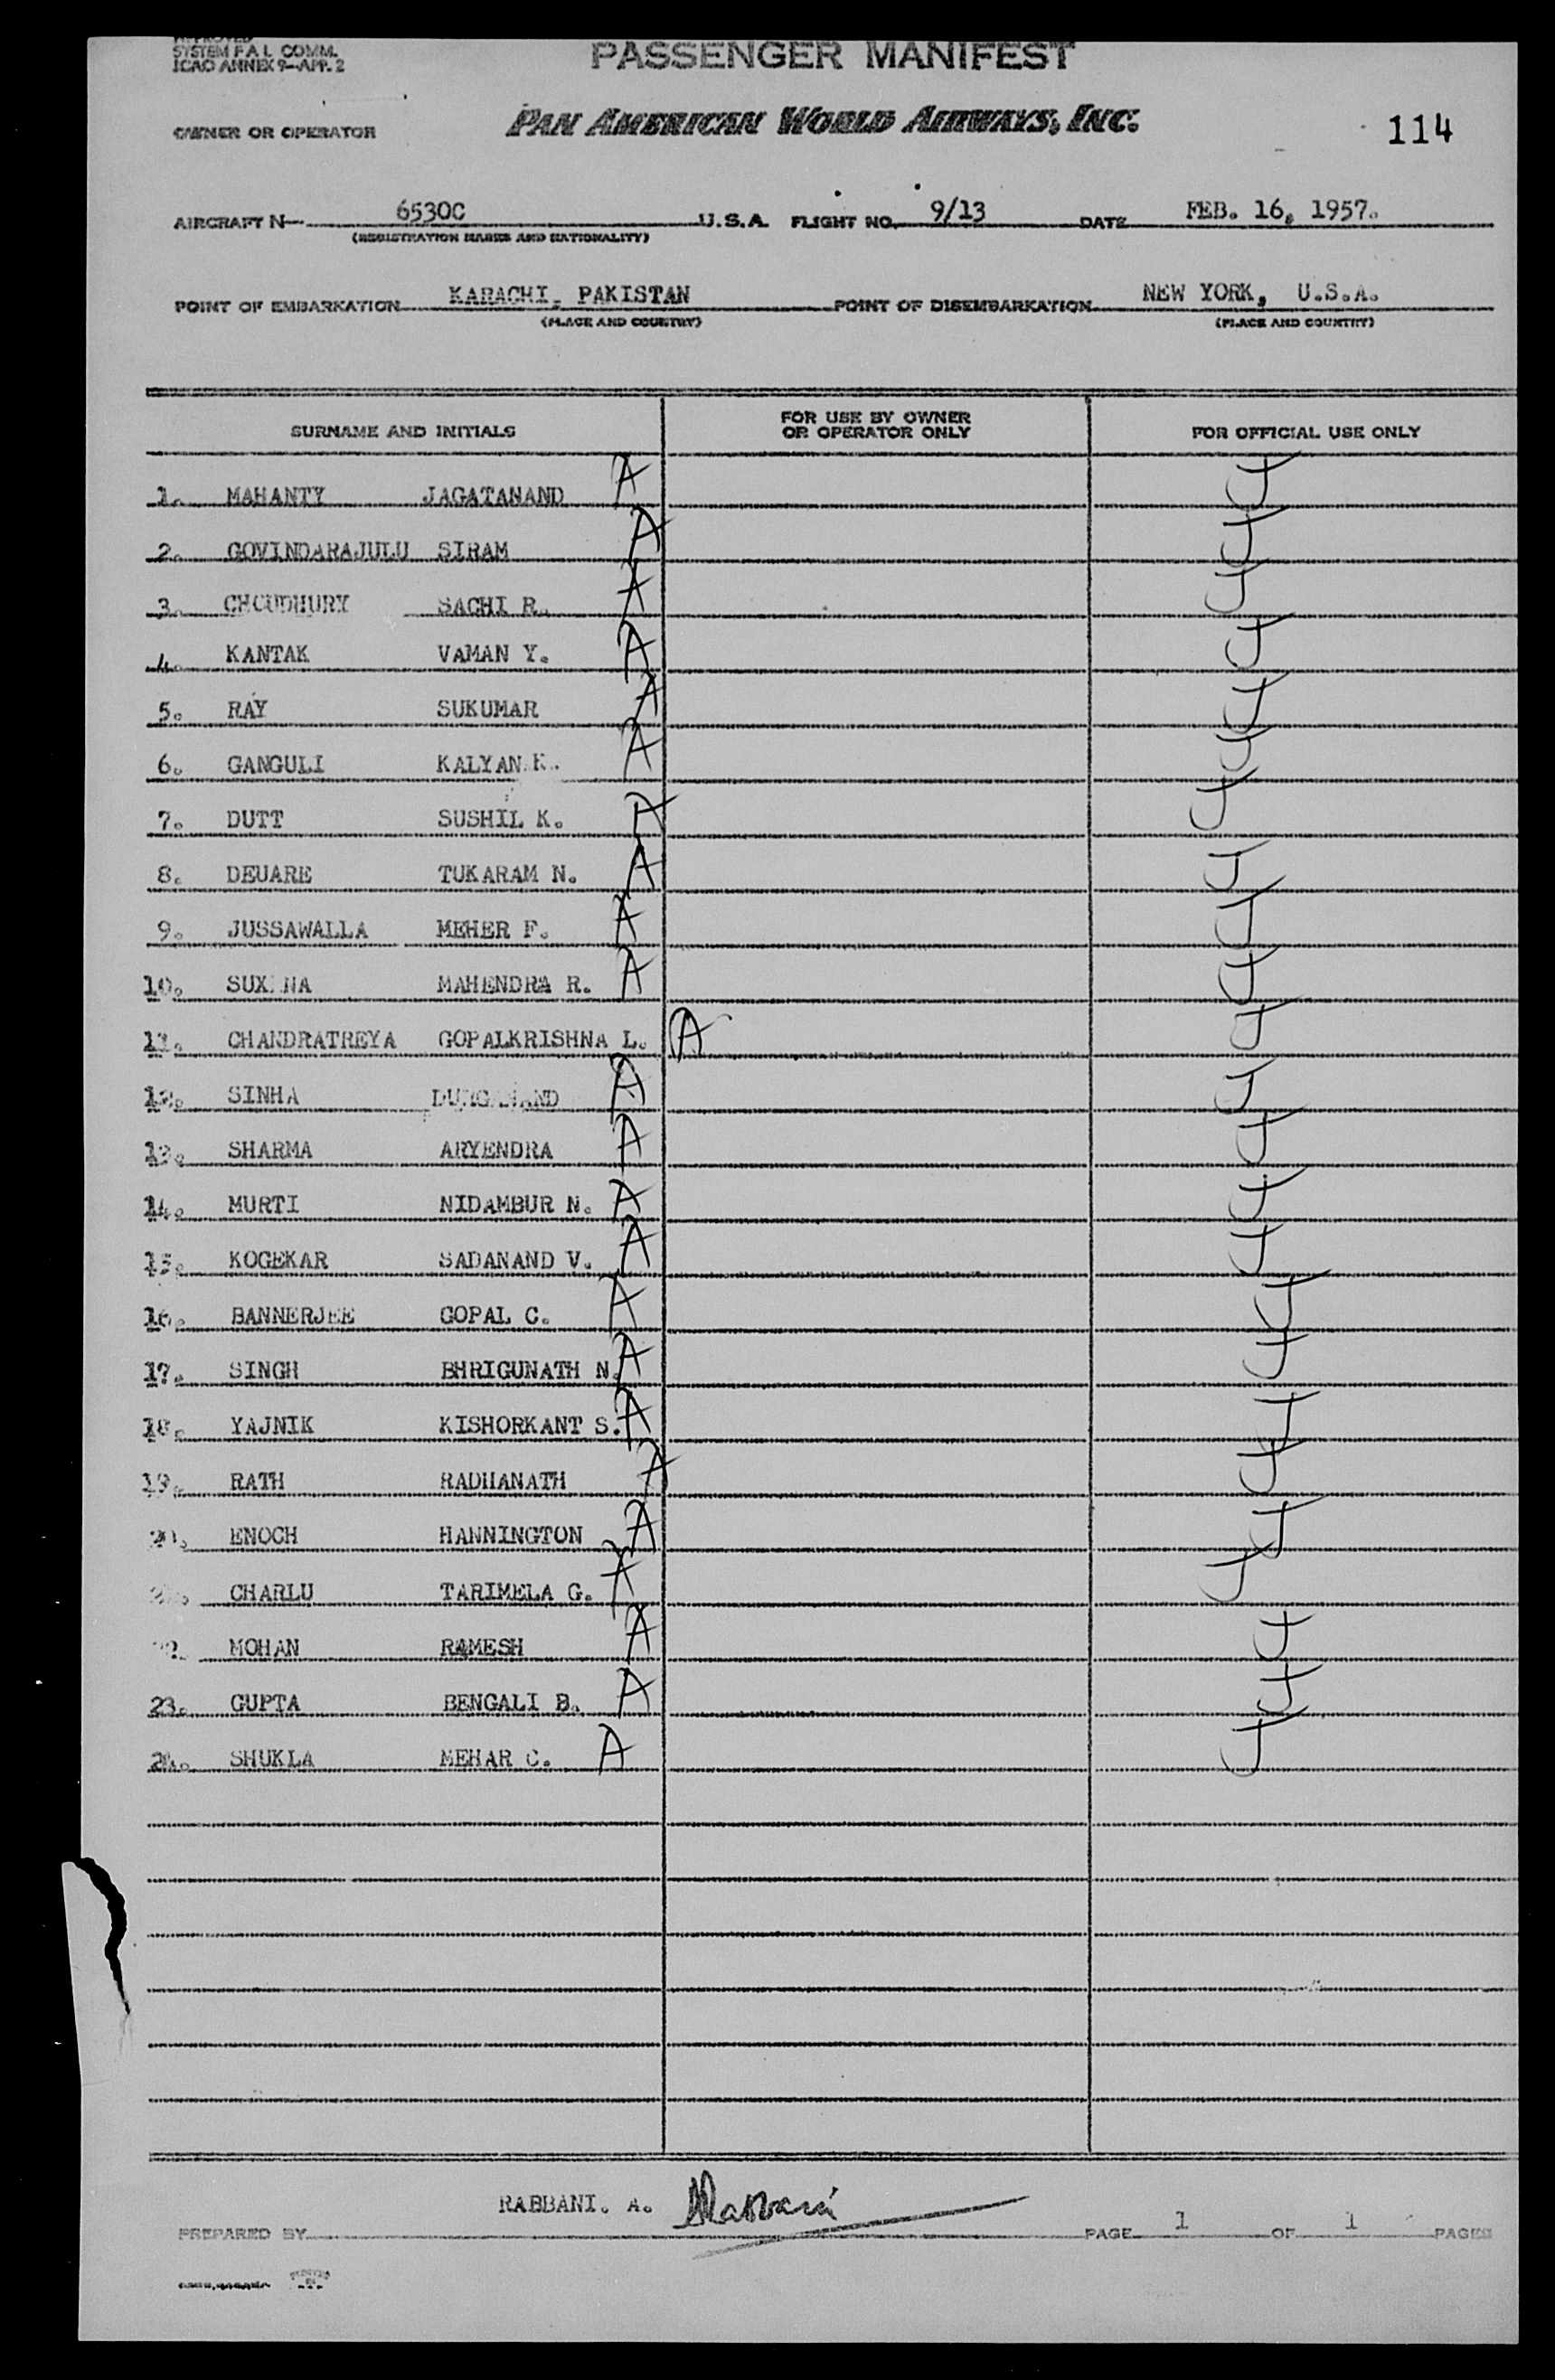 SYSTEM F A L COMM.
ICAO ANNEX 9—APP. 2
PASSENGER MANIFEST
OWNER OR OPERATOR PAN AMERICAN WORLD AIRWAYS, INC. 114
AIRCRAFT N— 6530C U.S.A. FLIGHT NO. 9/13 DATE FEB. 16, 1957.
(REGISTRATION MARKS AND NATIONALITY)
POINT OF EMBARKATION KARACHI, PAKISTAN POINT OF DISEMBARKATION NEW YORK, U.S.A.
(PLACE AND COUNTRY) (PLACE AND COUNTRY)
SURNAME AND INITIALS FOR USE BY OWNER OR OPERATOR ONLY FOR OFFICIAL USE ONLY
1. MAHANTY JAGATANAND A J
2. GOVINDARAJULU SIRAM A J
3. CHOUDHURY SACHI R. A J
4. KANTAK VAMAN Y. A J
5. RAY SUKUMAR A J
6. GANGULI KALYAN K. A J
7. DUTT SUSHIL K. A J
8. DEUARE TUKARAM N. A J
9. JUSSAWALLA MEHER F. A J
10. MAHENDRA R. A J
11. CHANDRATREYA GOPALKRISHNA L. A J
12. SINHA A J
13. SHARMA ARYENDRA A J
14. MURTI NIDAMBUR N. A J
15. KOGEKAR SADANAND V. A J
16. BANNERJEE GOPAL C. A J
17. SINGH BHRIGUNATH N. A J
18. YAJNIK KISHORKANT S. A J
19. RATH RADHANATH A J
20. ENOCH HANNINGTON A J
CHARLU TARIMELA G. A J
MOHAN RAMESH A J
23. GUPTA BENGALI B. A J
24. SHUKLA MEHAR C. A J
RABBANI. A. ARabbani
PREPARED BY PAGE 1 OF 1 PAGES